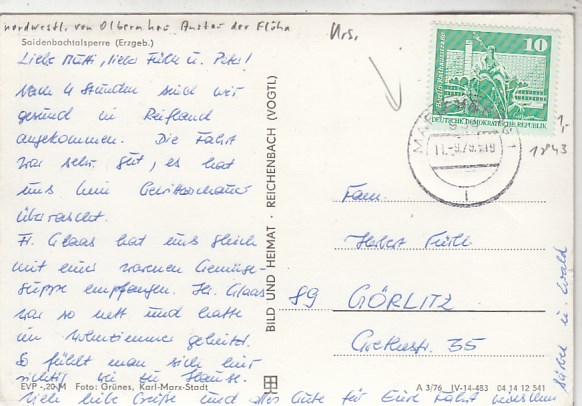 nordwestl. von Olbernhau Anstau der Flöha
Saidenbachtalsperre (Erzgeb.)
Liebe Mutti, liebe Füllis u. Peter!
Nach 4 Stunden sind wir
gesund in Reifland
angekommen. Die Fahrt
war sehr gut, es hat
uns kein Gewitterschauer
überrascht.
Fr. Claas hat uns gleich
mit einer warmen Gemüse-
suppe empfangen. Hr. Claas
war so nett und hatte
im Wohnzimmer geheizt.
So fühlt man sich hier
richtig wie zu Hause.
liebe Grüße und alles Gute für Eure Fahrt
BILD UND HEIMAT · REICHENBACH (VOGTL)
10
Berlin, Rathausstraße
DEUTSCHE DEMOKRATISCHE REPUBLIK
11.-9.76
1,-
1843
Fam.
89 GÖRLITZ
35
EVP -,20 M Foto: Grünes, Karl-Marx-Stadt
A 3/76 IV-14-483 04 14 12 541